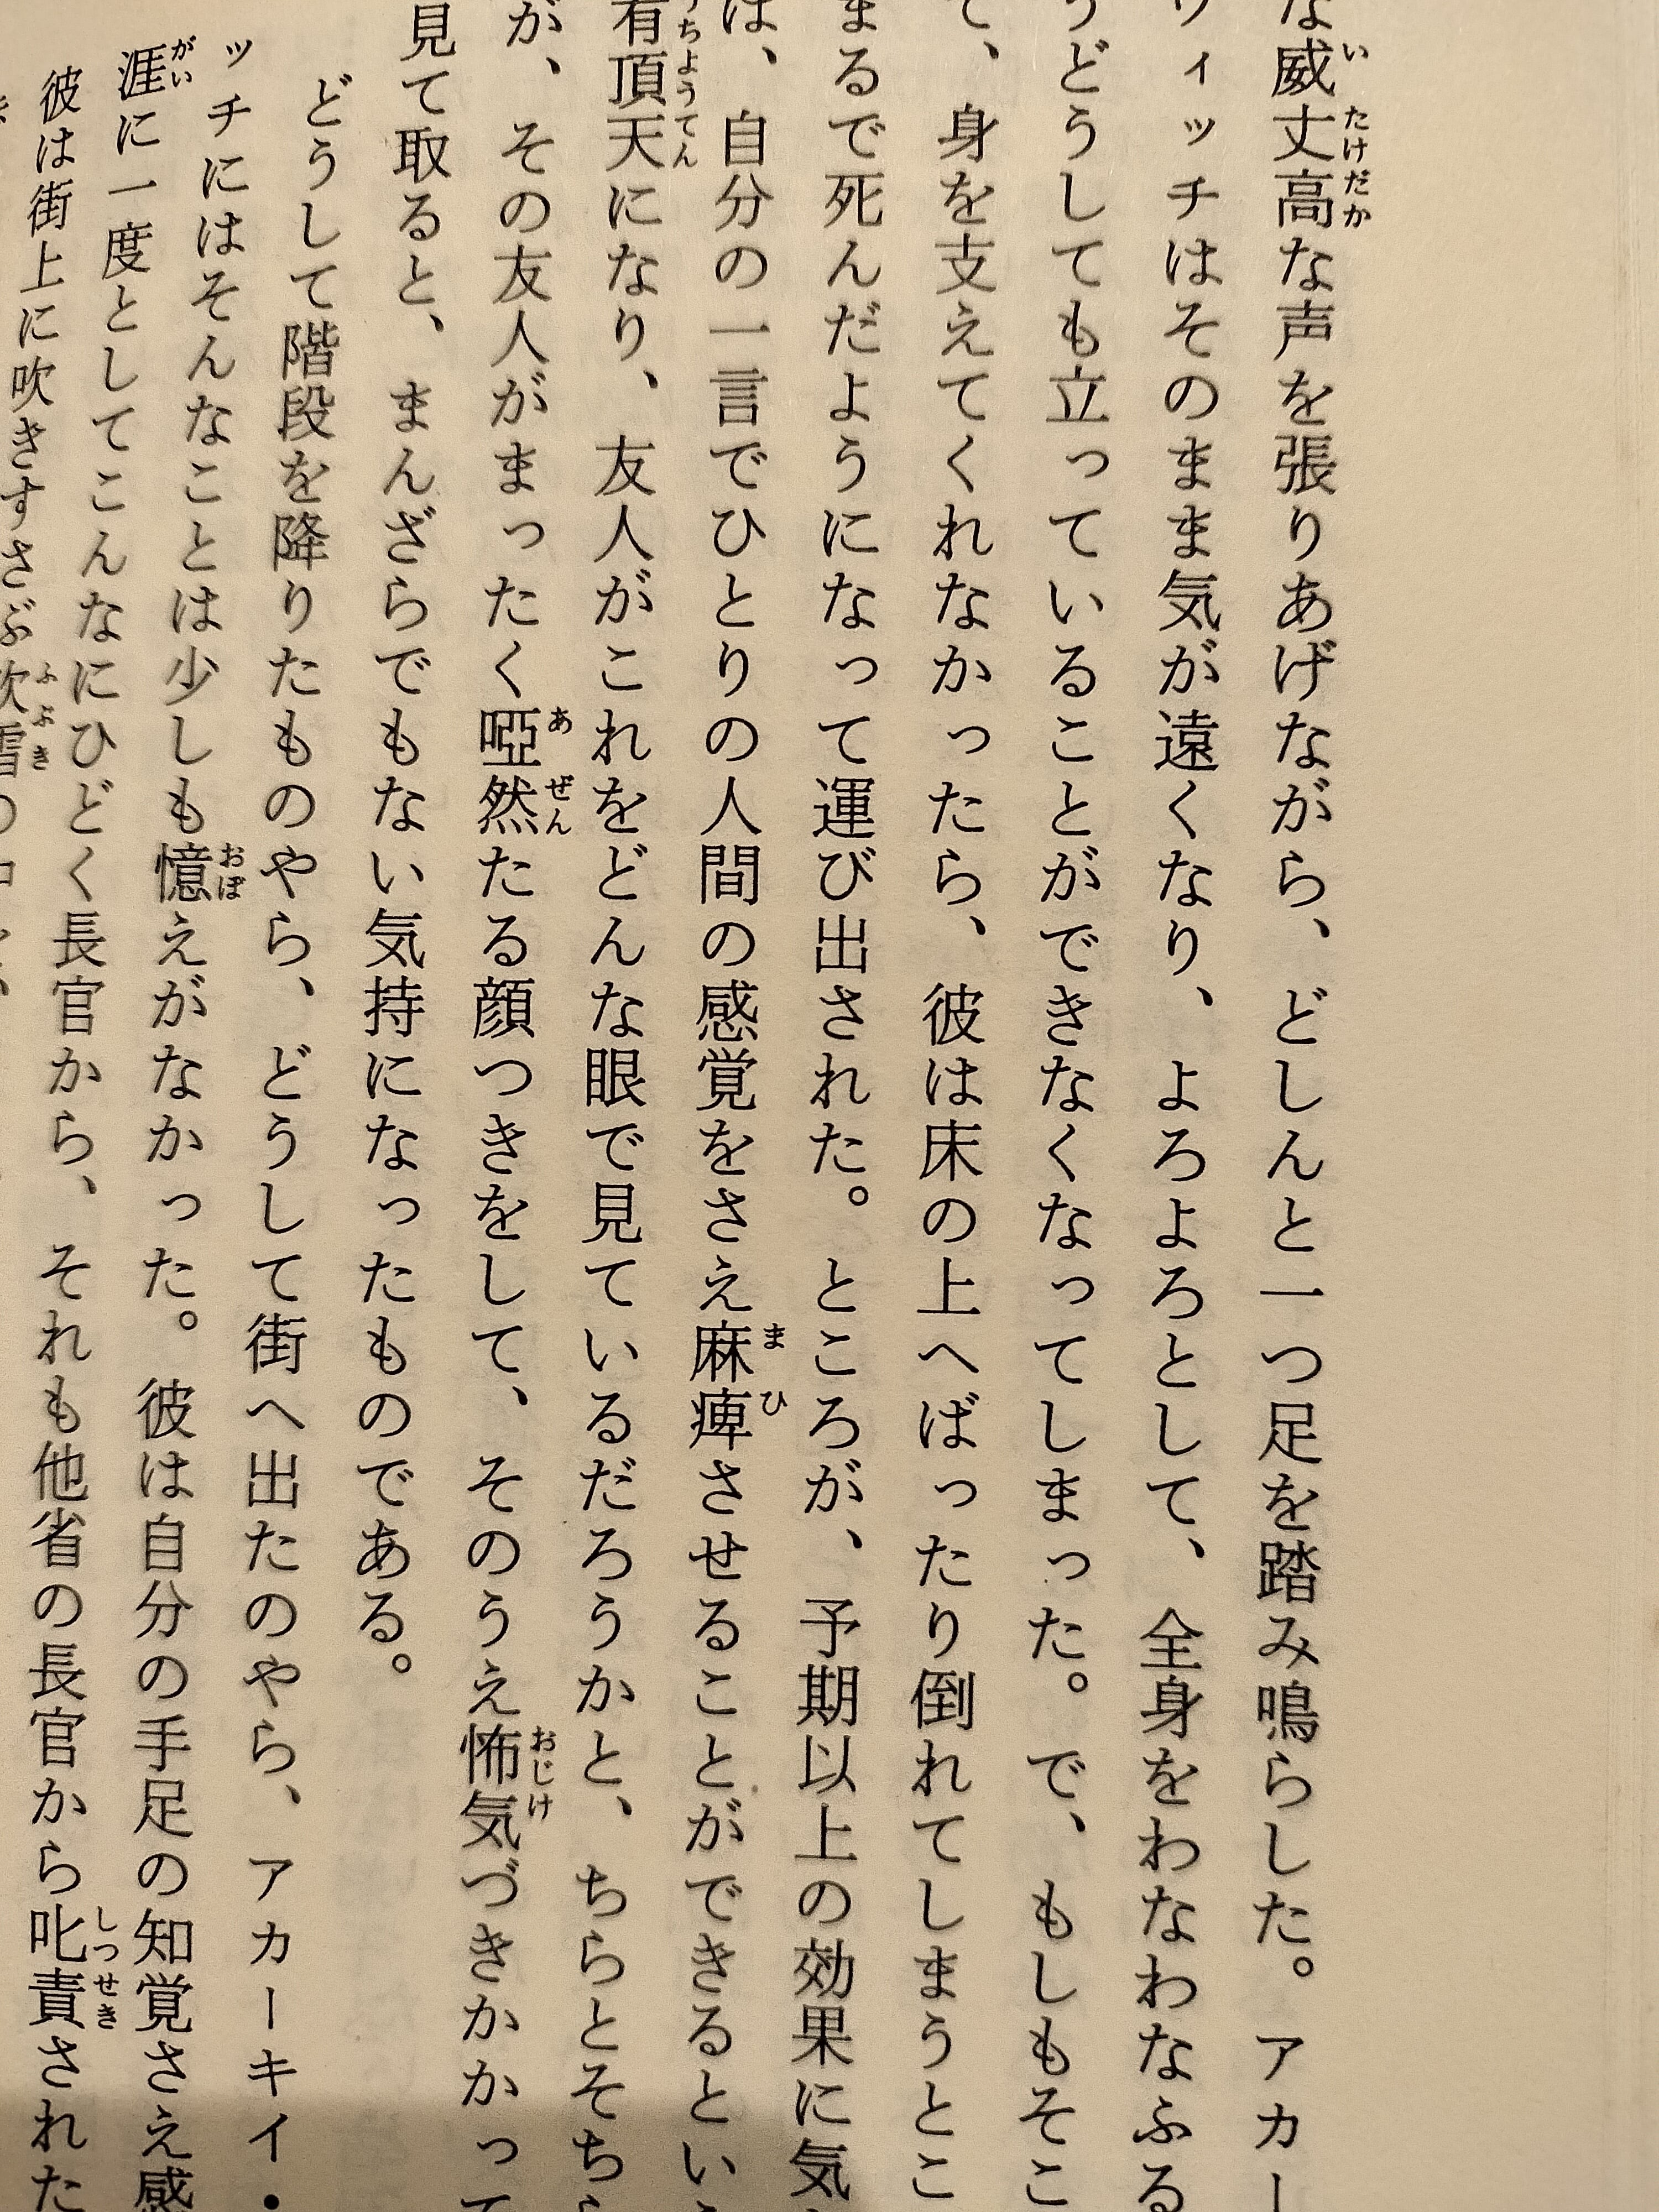 な威丈高な声を張りあげながら、どしんと一つ足を踏み鳴らした。アカー
ィッチはそのまま気が遠くなり、よろよろとして、全身をわなわなふる
うどうしても立っていることができなくなってしまった。で、もしもそこ
て、身を支えてくれなかったら、彼は床の上へばったり倒れてしまうとこ
まるで死んだようになって運び出された。ところが、予期以上の効果に気
は、自分の一言でひとりの人間の感覚をさえ麻痺させることができるという
有頂天になり、友人がこれをどんな眼で見ているだろうかと、ちらとそちら
が、その友人がまったく啞然たる顔つきをして、そのうえ怖気づきかかって
見て取ると、まんざらでもない気持になったものである。
どうして階段を降りたものやら、どうして街へ出たのやら、アカーキイ・
ッチにはそんなことは少しも憶えがなかった。彼は自分の手足の知覚さえ感
涯に一度としてこんなにひどく長官から、それも他省の長官から叱責された
彼は街上に吹きすさぶ吹雪の